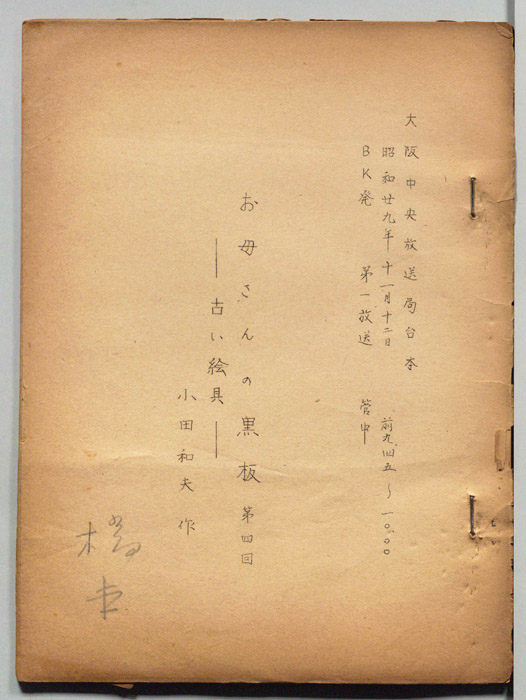 大阪中央放送局台本
昭和廿九年十一月十二日 前九.四五~一〇.〇〇
BK発 第一放送 管中
お母さんの黒板 第四回
――古い絵具――
小田和夫 作